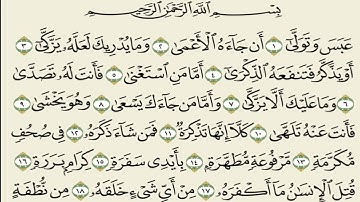 بِسْمِ اللَّهِ الرَّحْمَٰنِ الرَّحِيمِ
عَبَسَ وَتَوَلَّىٰ ١ أَن جَاءَهُ الْأَعْمَىٰ ٢ وَمَا يُدْرِيكَ لَعَلَّهُ يَزَّكَّىٰ ٣
أَوْ يَذَّكَّرُ فَتَنفَعَهُ الذِّكْرَىٰ ٤ أَمَّا مَنِ اسْتَغْنَىٰ ٥ فَأَنتَ لَهُ تَصَدَّىٰ
٦ وَمَا عَلَيْكَ أَلَّا يَزَّكَّىٰ ٧ وَأَمَّا مَن جَاءَكَ يَسْعَىٰ ٨ وَهُوَ يَخْشَىٰ ٩
فَأَنتَ عَنْهُ تَلَهَّىٰ ١٠ كَلَّا إِنَّهَا تَذْكِرَةٌ ١١ فَمَن شَاءَ ذَكَرَهُ ١٢ فِي صُحُفٍ
مُّكَرَّمَةٍ ١٣ مَّرْفُوعَةٍ مُّطَهَّرَةٍ ١٤ بِأَيْدِي سَفَرَةٍ ١٥ كِرَامٍ بَرَرَةٍ ١٦
قُتِلَ الْإِنسَانُ مَا أَكْفَرَهُ ١٧ مِنْ أَيِّ شَيْءٍ خَلَقَهُ ١٨ مِن نُّطْفَةٍ